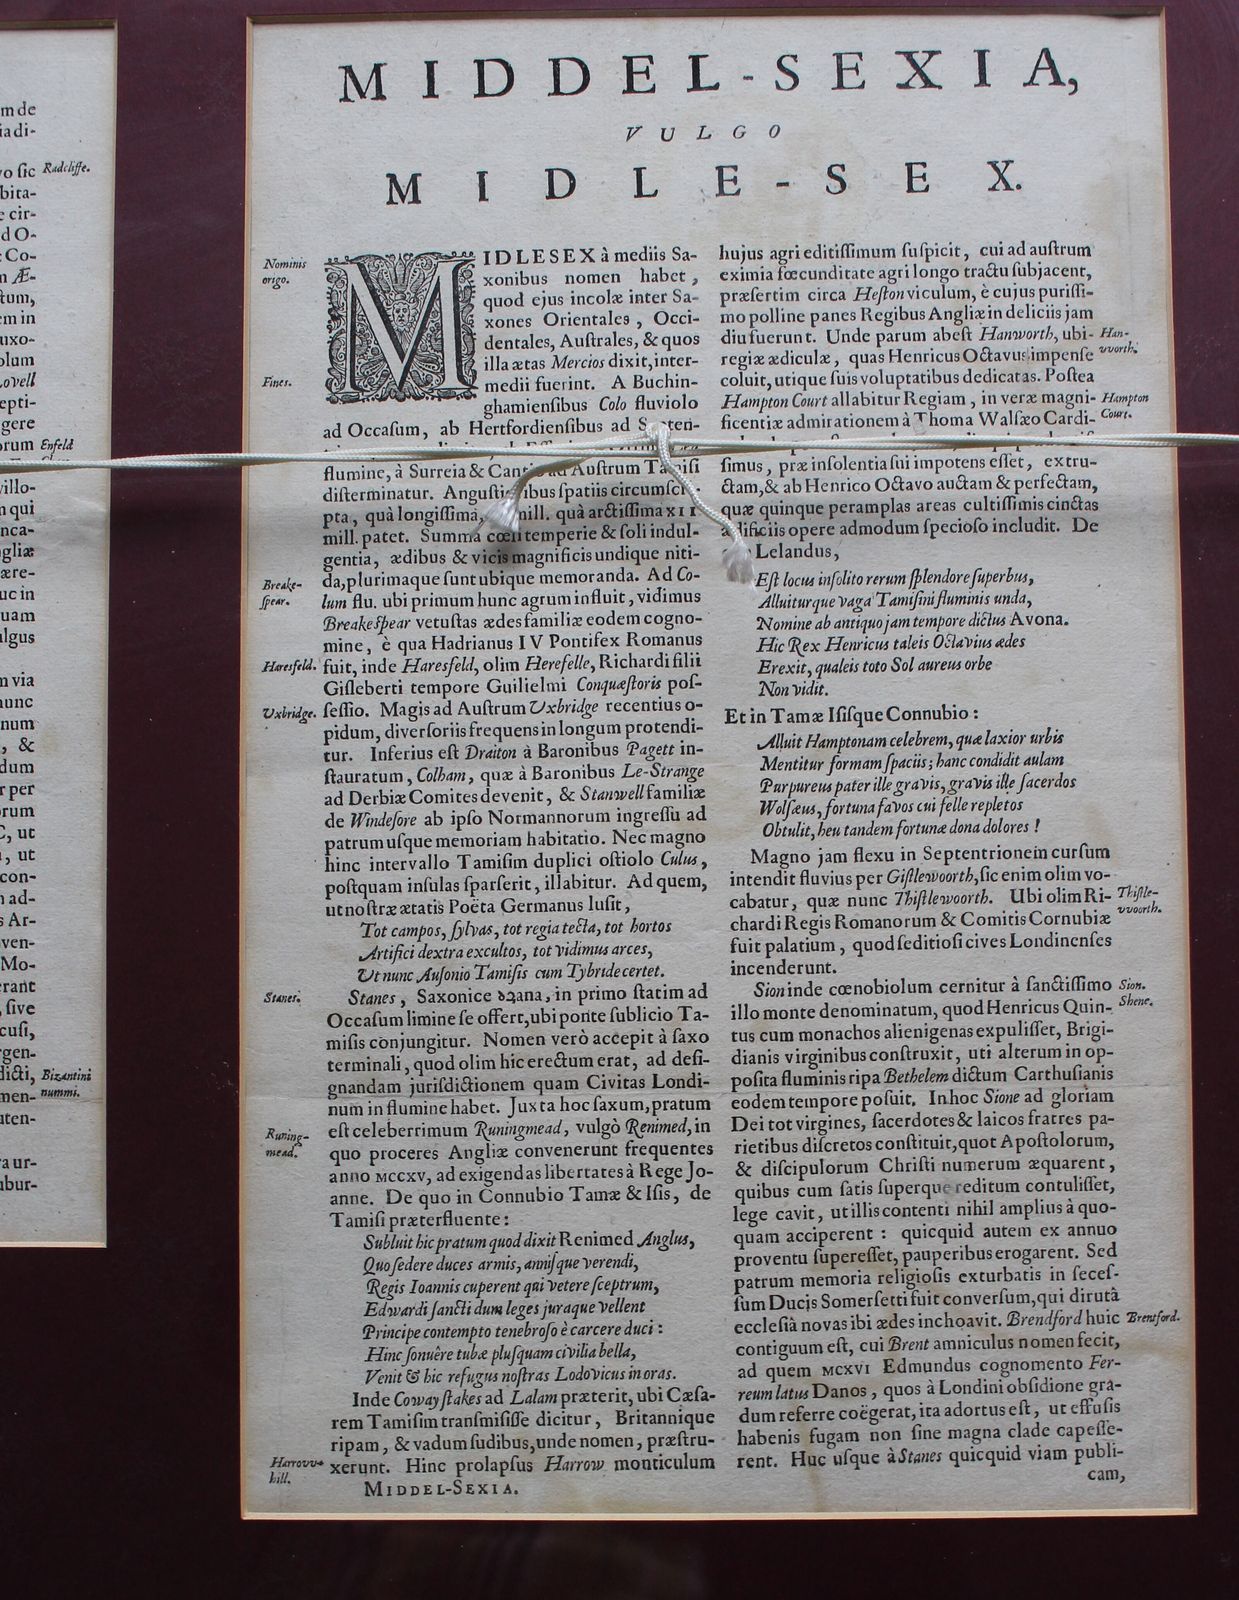 m de
ia di-
vo sic
Radcliffe.
bita-
e cir-
d O-
Co-
n Æ-
tum,
em in
uxo-
olum
Lovell
epti-
gere
orum
Enfeld
villo-
n qui
nca-
gliæ
ære-
uc in
quam
ulgus
m via
nunc
num
, &
dum
r per
orum
C, ut
, ut
con-
n ad-
s Ar-
ven-
Mo-
erant
, sive
cusi,
rgen-
dicti,
Bizantini
men-
nummi.
uten-
a ur-
ubur-
MIDDEL-SEXIA,
VULGO
MIDLE-SEX.
Nominis
origo.
MIDLESEX à mediis Sa-
xonibus nomen habet,
quod ejus incolæ inter Sa-
xones Orientales, Occi-
dentales, Australes, & quos
illa ætas Mercios dixit, inter-
Fines.
medii fuerint. A Buchin-
ghamiensibus Colo fluviolo
ad Occasum, ab Hertfordiensibus ad
flumine, à Surreia & ad Austrum Tamisi
disterminatur. spatiis
pta, quà longissima, mill. quà arctissima XII
mill. patet. Summa cœli temperie & soli indul-
gentia, ædibus & vicis magnificis undique niti-
da, plurimaque sunt ubique memoranda. Ad Co-
Breake-
spear.
lum flu. ubi primum hunc agrum influit, vidimus
Breakespear vetustas ædes familiæ eodem cogno-
mine, è qua Hadrianus IV Pontifex Romanus
Haresfeld.
fuit, inde Haresfeld, olim Herefelle, Richardi filii
Gisleberti tempore Guilielmi Conquæstoris pos-
Uxbridge.
sessio. Magis ad Austrum Uxbridge recentius o-
pidum, diversoriis frequens in longum protendi-
tur. Inferius est Draiton à Baronibus Pagett in-
stauratum, Colham, quæ à Baronibus Le-Strange
ad Derbiæ Comites devenit, & Stanwell familiæ
de Windesore ab ipso Normannorum ingressu ad
patrum usque memoriam habitatio. Nec magno
hinc intervallo Tamisim duplici ostiolo Culus,
postquam insulas sparserit, illabitur. Ad quem,
ut nostræ ætatis Poëta Germanus lusit,
Tot campos, sylvas, tot regia tecta, tot hortos
Artifici dextra excultos, tot vidimus arces,
Ut nunc Ausonio Tamisis cum Tybride certet.
Stanes.
Stanes, Saxonice in primo statim ad
Occasum limine se offert, ubi ponte sublicio Ta-
misis conjungitur. Nomen verò accepit à saxo
terminali, quod olim hic erectum erat, ad desi-
gnandam jurisdictionem quam Civitas Londi-
num in flumine habet. Juxta hoc saxum, pratum
Runing-
mead.
est celeberrimum Runingmead, vulgò Renimed, in
quo proceres Angliæ convenerunt frequentes
anno MCCXV, ad exigendas libertates à Rege Jo-
anne. De quo in Connubio Tamæ & Isis, de
Tamisi præterfluente:
Subluit hic pratum quod dixit Renimed Anglus,
Quo sedere duces armis, annisque verendi,
Regis Ioannis cuperent qui vetere sceptrum,
Edwardi sancti dum leges juraque vellent
Principe contempto tenebroso è carcere duci:
Hinc sonuêre tubæ plusquam civilia bella,
Venit & hic refugus nostras Lodovicus in oras.
Inde Coway stakes ad Lalam præterit, ubi Cæsa-
rem Tamisim transmisisse dicitur, Britannique
ripam, & vadum sudibus, unde nomen, præstru-
Harrovv-
hill.
xerunt. Hinc prolapsus Harrow monticulum
MIDDEL-SEXIA.
hujus agri editissimum suspicit, cui ad austrum
eximia fœcunditate agri longo tractu subjacent,
præsertim circa Heston viculum, è cujus purissi-
mo polline panes Regibus Angliæ in deliciis jam
diu fuerunt. Unde parum abest Hanworth, ubi-
Han-
vvorth.
regiæ ædiculæ, quas Henricus Octavus impense
coluit, utique suis voluptatibus dedicatas. Postea
Hampton Court allabitur Regiam, in veræ magni-
Hampton
Court.
ficentiæ admirationem à Thoma Walsæo Cardi-
simus, præ insolentia sui impotens esset, extru-
ctam, & ab Henrico Octavo auctam & perfectam,
quæ quinque peramplas areas cultissimis cinctas
ædificiis opere admodum specioso includit. De
Lelandus,
Est locus insolito rerum splendore superbus,
Alluiturque vaga Tamisini fluminis unda,
Nomine ab antiquo jam tempore dictus Avona.
Hic Rex Henricus taleis Octavius ædes
Erexit, qualeis toto Sol aureus orbe
Non vidit.
Et in Tamæ Isisque Connubio:
Alluit Hamptonam celebrem, quæ laxior urbis
Mentitur formam spaciis; hanc condidit aulam
Purpureus pater ille gravis, gravis ille sacerdos
Wolsæus, fortuna favos cui felle repletos
Obtulit, heu tandem fortunæ dona dolores!
Magno jam flexu in Septentrionem cursum
intendit fluvius per Gistlewoorth, sic enim olim vo-
cabatur, quæ nunc Thistlewoorth. Ubi olim Ri-
Thistle-
vvoorth.
chardi Regis Romanorum & Comitis Cornubiæ
fuit palatium, quod seditiosi cives Londinenses
incenderunt.
Sion inde cœnobiolum cernitur à sanctissimo
Sion.
Shene.
illo monte denominatum, quod Henricus Quin-
tus cum monachos alienigenas expulisset, Brigi-
dianis virginibus construxit, uti alterum in op-
posita fluminis ripa Bethelem dictum Carthusianis
eodem tempore posuit. In hoc Sione ad gloriam
Dei tot virgines, sacerdotes & laicos fratres pa-
rietibus discretos constituit, quot Apostolorum,
& discipulorum Christi numerum æquarent,
quibus cum satis superque reditum contulisset,
lege cavit, ut illis contenti nihil amplius à quo-
quam acciperent: quicquid autem ex annuo
proventu superesset, pauperibus erogarent. Sed
patrum memoria religiosis exturbatis in seces-
sum Ducis Somersetti fuit conversum, qui dirutâ
ecclesiâ novas ibi ædes inchoavit. Brendford huic
Brentford.
contiguum est, cui Brent amniculus nomen fecit,
ad quem MCXVI Edmundus cognomento Fer-
reum latus Danos, quos à Londini obsidione gra-
dum referre coëgerat, ita adortus est, ut effusis
habenis fugam non sine magna clade capesse-
rent. Huc usque à Stanes quicquid viam publi-
cam,